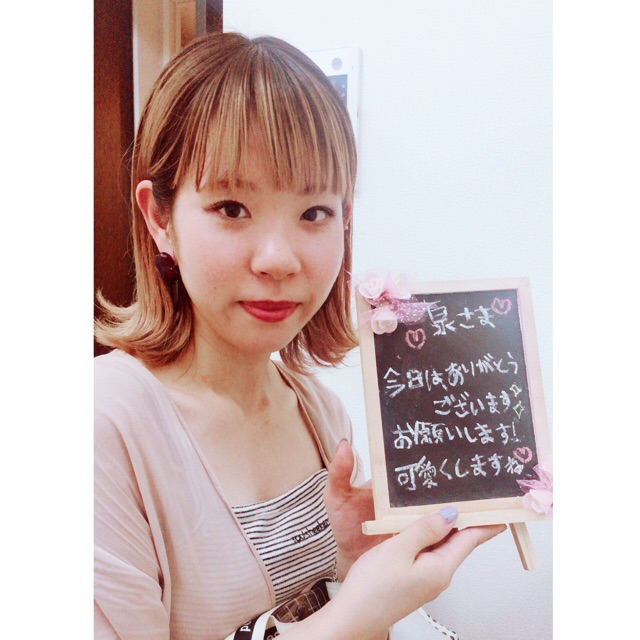 泉さま
今日はありがとう
ございます
お願いします!
可愛くしますね